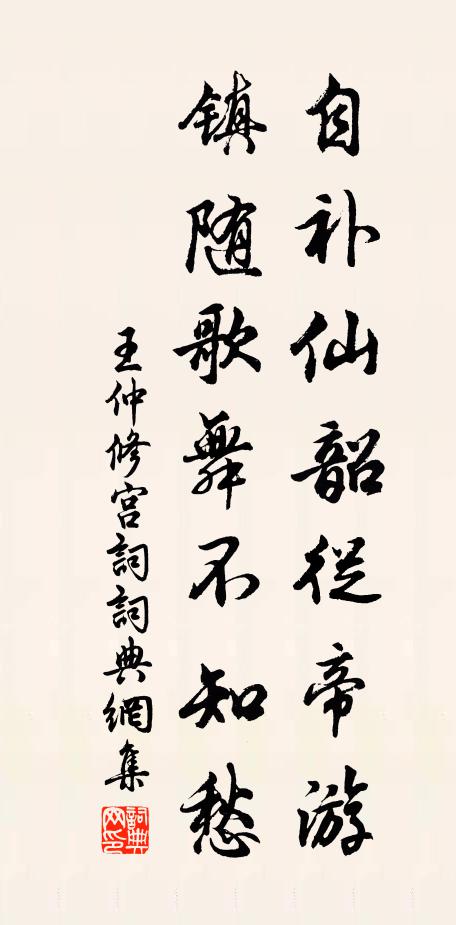 自补仙韶從帝游
镇随歌舞不知愁
王仲修宫詞詞典網集
詞典网印